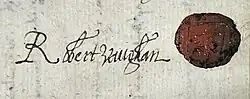 Robert Vaughan